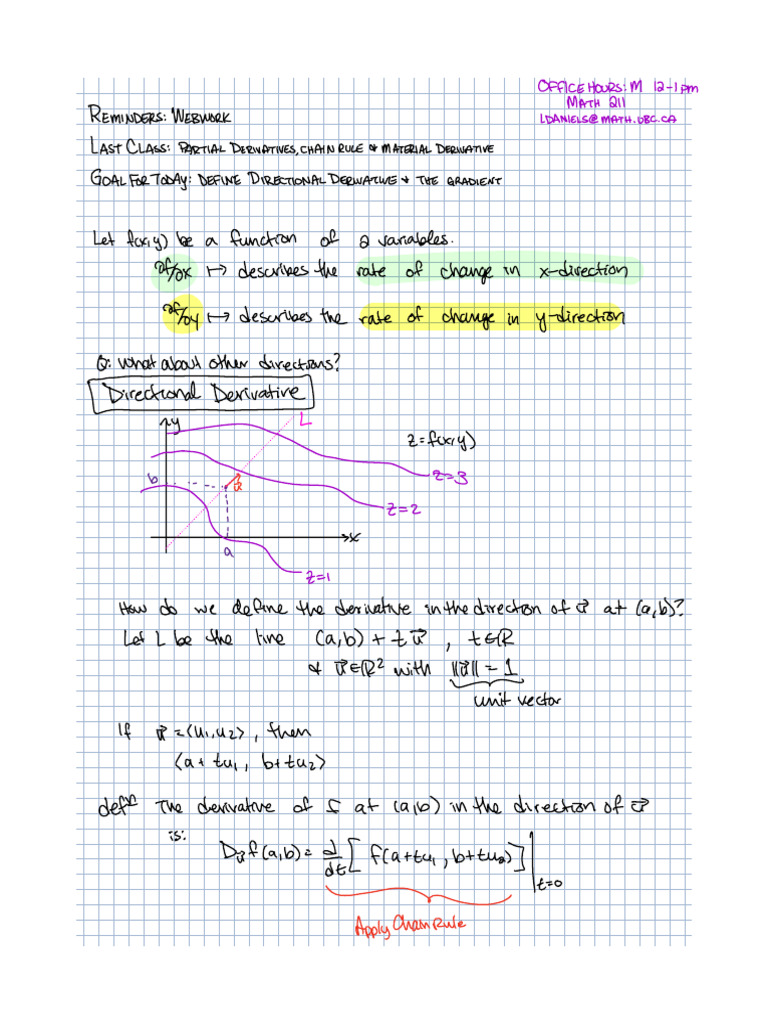 OFFICE HOURS: M 12-1pm
MATH 211
LDANIELS@MATH.UBC.CA
REMINDERS: WEBWORK
LAST CLASS: PARTIAL DERIVATIVES, CHAIN RULE & MATERIAL DERIVATIVE
GOAL FOR TODAY: DEFINE DIRECTIONAL DERIVATIVE & THE GRADIENT
Let f(x,y) be a function of 2 variables.
∂f/∂x ↦ describes the rate of change in x-direction
∂f/∂y ↦ describes the rate of change in y-direction
Q: What about other directions?
Directional Derivative
y
L
z=f(x,y)
b
u⃗
z=3
z=2
x
a
z=1
How do we define the derivative in the direction of u⃗ at (a,b)?
Let L be the line (a,b) + t u⃗ , t∈ℝ
& u⃗∈ℝ² with ||u⃗|| = 1
unit vector
If u⃗ = ⟨u₁,u₂⟩, then
⟨a+tu₁, b+tu₂⟩
defⁿ The derivative of f at (a,b) in the direction of u⃗
is:
D_u⃗ f(a,b) = d/dt [f(a+tu₁, b+tu₂)] |_t=0
Apply Chain Rule